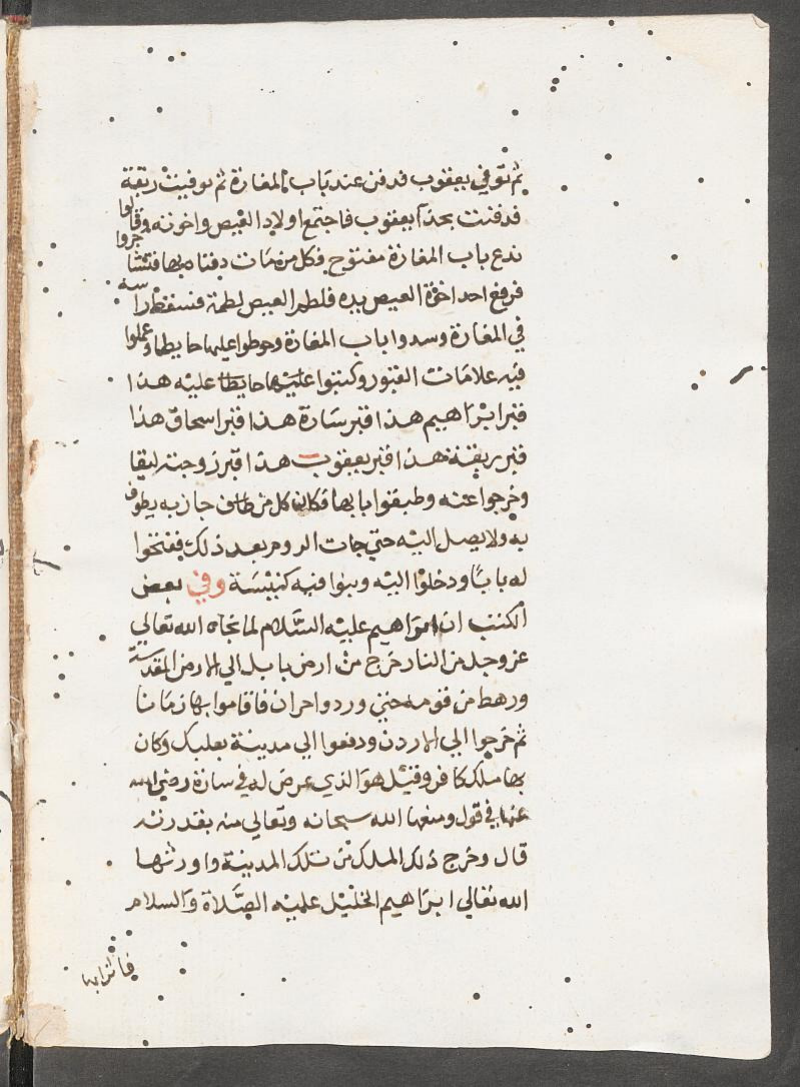 ثم توفي يعقوب فدفن عند باب المغارة ثم توفيت ريقة
فدفنت بحذآ يعقوب فاجتمع اولاد العيص واخوته وقالوا
ندع باب المغارة مفتوح فكل من مات دفناه بها فتشاجروا
فرفع احد اخوة العيص يده فلطم العيص لطمة فسقط راسه
في المغارة وسدوا باب المغارة وحوطوا عليها حايطا وعملوا
فيه علامات القبور وكتبوا عليها حايطا عليه هذا
قبر ابراهيم هذا قبر سارة هذا قبر اسحاق هذا
قبر ريقة هذا قبر يعقوب هذا قبر زوجته ليقا
وخرجوا عنه وطبقوا بابها فكان كل من طاف جاز به يطوف
به ولا يصل اليه حتي جات الروم بعد ذلك ففتحوا
له بابا ودخلوا اليه وبنوا فيه كنيسة وفي بعض
الكتب ان ابراهيم عليه السلام لما نجاه الله تعالي
عز وجل من النار خرج من ارض بابل الي الارض المقدسة
ورهط من قومه حتي وردوا حران فاقاموا بها زمانا
ثم خرجوا الي الاردن ودفعوا الي مدينة بعلبك وكان
بها ملك كافر وقيل هو الذي عرض له في سارة رضي الله
عنها في قول ومنعها الله سبحانه وتعالي منه بقدرته
قال وخرج ذلك الملك من تلك المدينة واورثها
الله تعالي ابراهيم الخليل عليه الصلاة والسلام